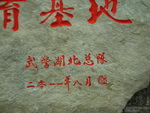 育基地
武警湖北总队
二零一一年八月